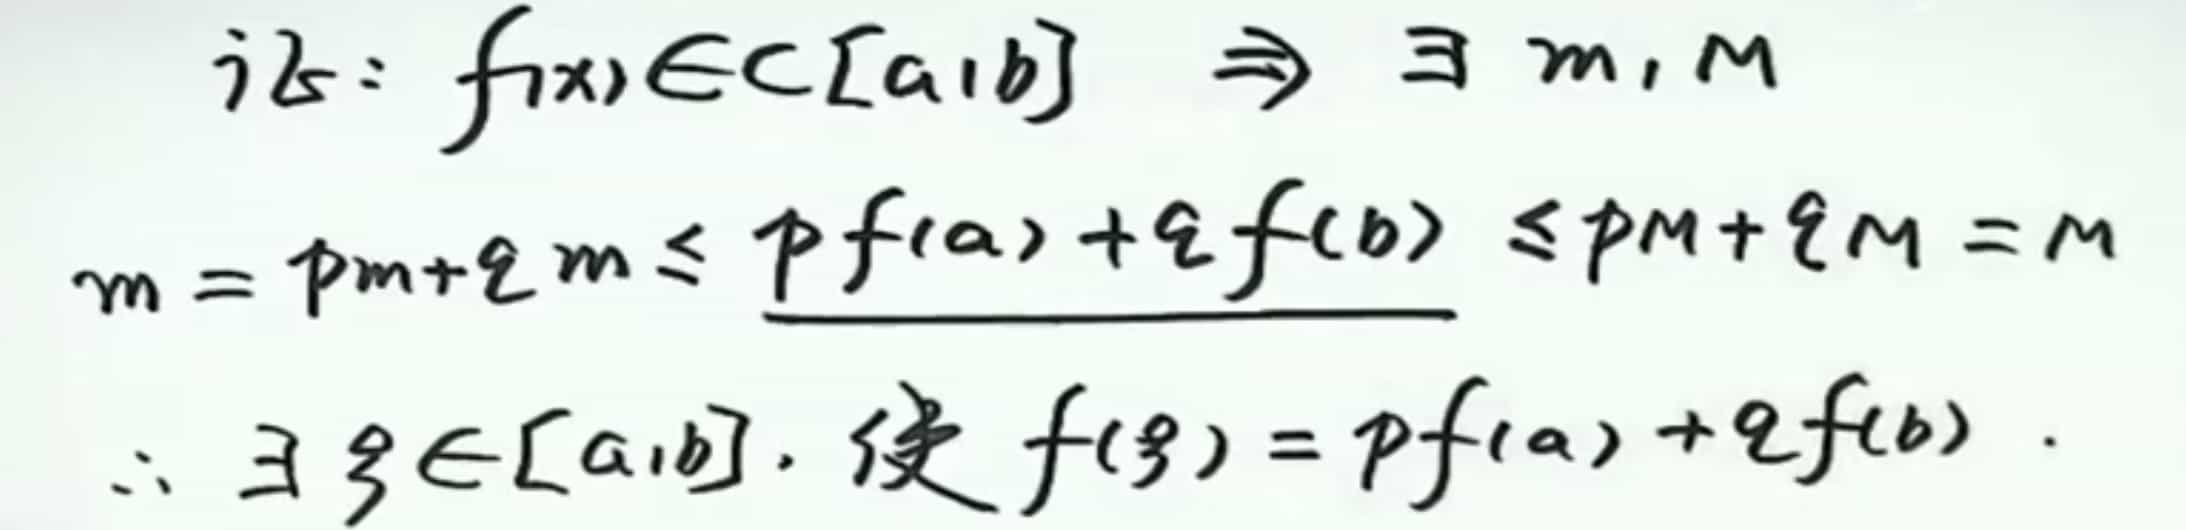 证: f(x)∈C[a,b] ⇒ ∃ m, M
m = pm+qm ≤ pf(a)+qf(b) ≤ pM+qM = M
∴ ∃ ξ∈[a,b]. 使 f(ξ) = pf(a)+qf(b).